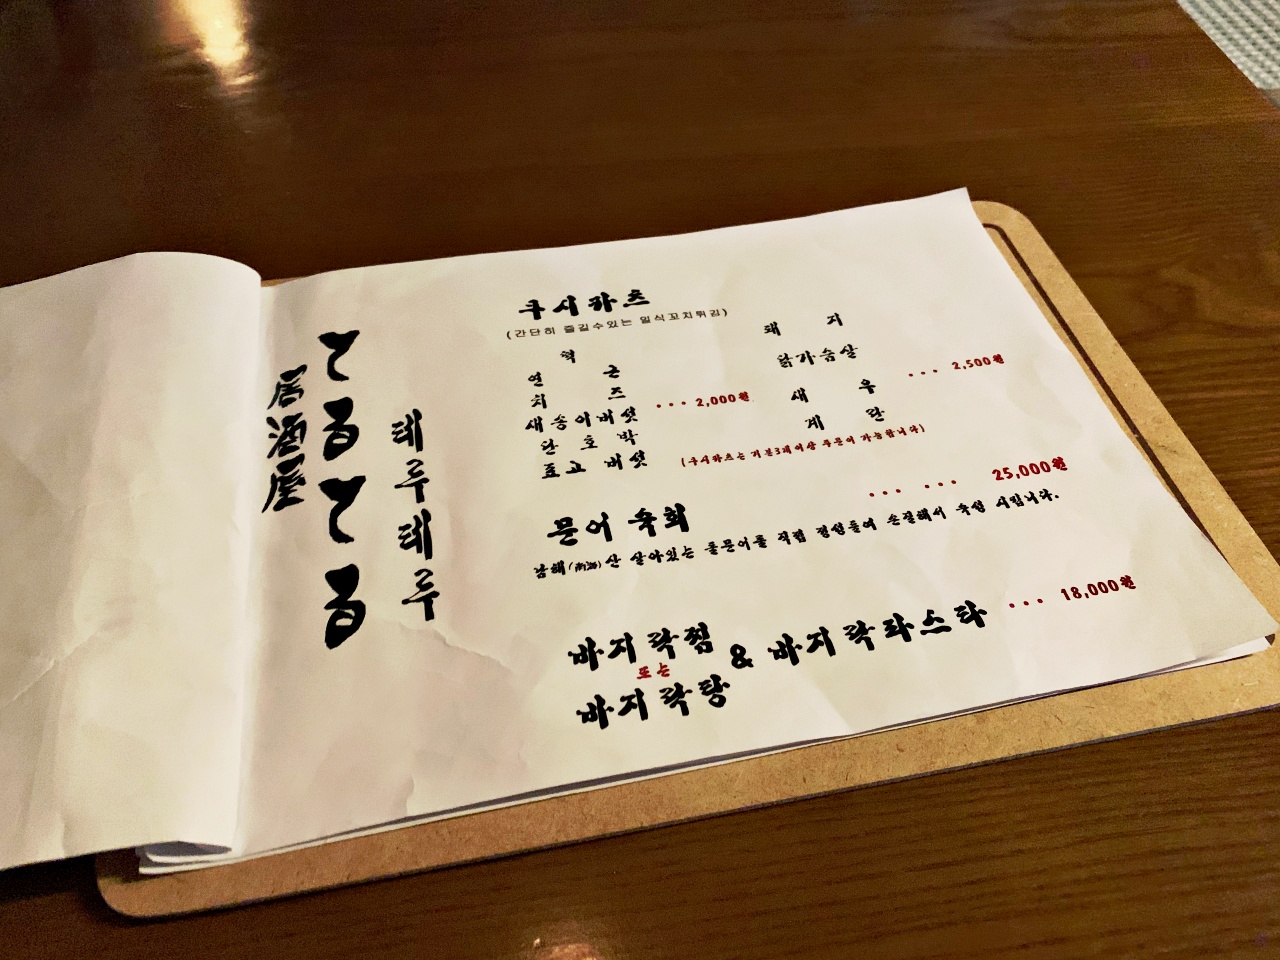 居酒屋
てるてる
테루테루
쿠시카츠
(간단히 즐길수있는 일식꼬치튀김)
떡
연 근
치 즈
새송이버섯
단 호 박
표고 버섯
... 2,000원
돼 지
닭가슴살
새 우
계 란
... 2,500원
(쿠시카츠는 기본3개이상 주문이 가능합니다)
문어 숙회 ... ... 25,000원
남해(南海)산 살아있는 돌문어를 직접 정성들여 손질해서 숙성 시킵니다.
바지락찜
또는
바지락탕
& 바지락파스타 ... 18,000원